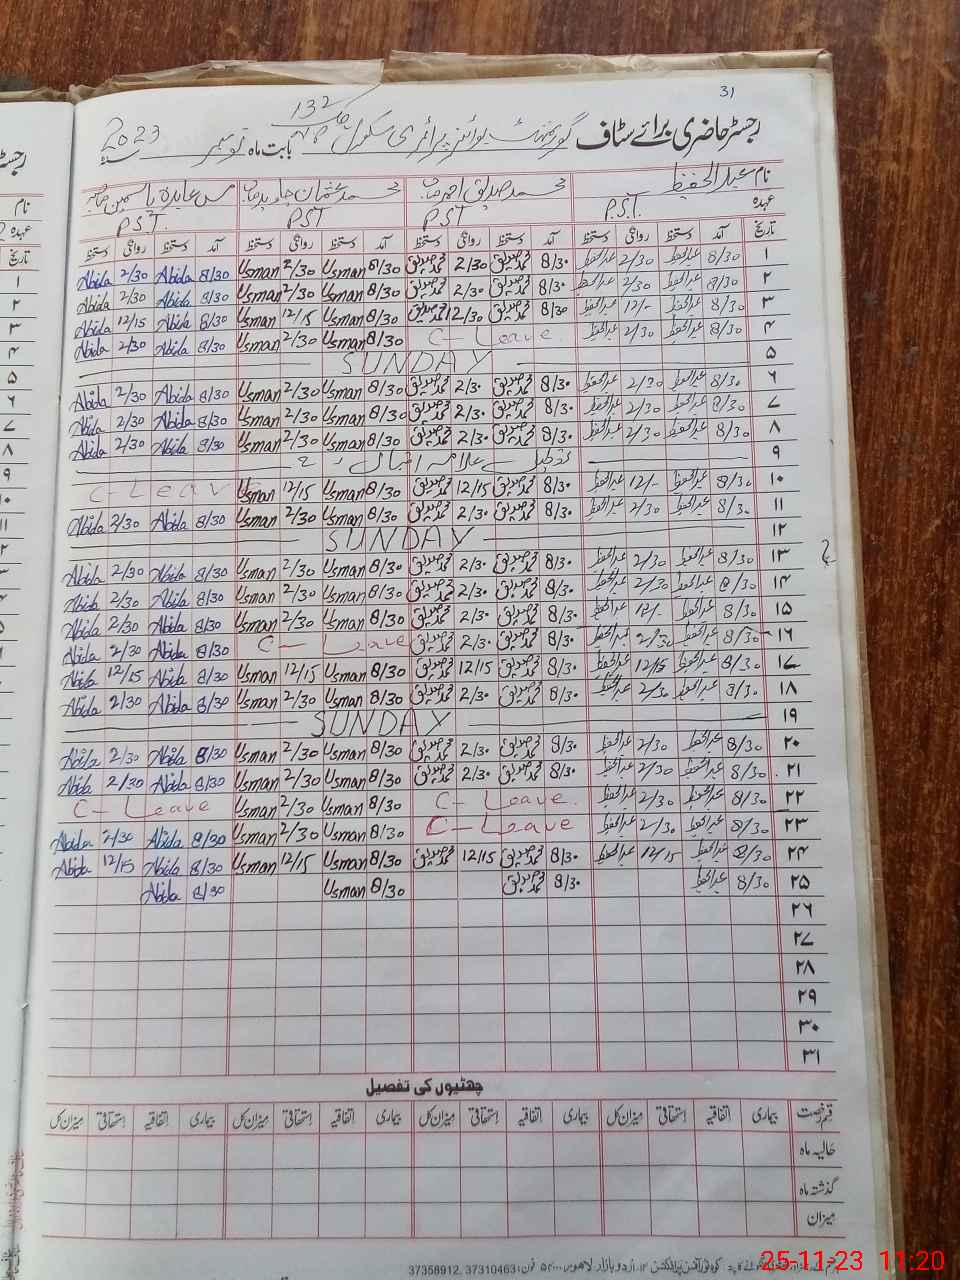 31
رجسٹر حاضری برائے سٹاف گورنمنٹ بوائز پرائمری سکول چک 132 بابت ماہ نومبر سنہ 2023
نام عبدالحفیظ محمد صدیق احمد صاحب محمد عثمان جاوید صاحب مس عابدہ یاسمین صاحبہ
عہدہ P.S.T. P.S.T P.S.T P.S.T.
تاریخ آمد دستخط روانگی دستخط آمد دستخط روانگی دستخط آمد دستخط روانگی دستخط آمد دستخط روانگی دستخط
۱ 8/30 عبدالحفیظ 2/30 عبدالحفیظ 8/30 محمد صدیق 2/30 محمد صدیق 8/30 Usman 2/30 Usman 8/30 Abida 2/30 Abida
۲ 8/30 عبدالحفیظ 2/30 عبدالحفیظ 8/30 محمد صدیق 2/30 محمد صدیق 8/30 Usman 2/30 Usman 8/30 Abida 2/30 Abida
۳ 8/30 عبدالحفیظ 12/- عبدالحفیظ 8/30 محمد صدیق 12/30 محمد صدیق 8/30 Usman 12/15 Usman 8/30 Abida 12/15 Abida
۴ 8/30 عبدالحفیظ 2/30 عبدالحفیظ C- Leave. 8/30 Usman 2/30 Usman 8/30 Abida 2/30 Abida
۵ SUNDAY
۶ 8/30 عبدالحفیظ 2/30 عبدالحفیظ 8/30 محمد صدیق 2/30 محمد صدیق 8/30 Usman 2/30 Usman 8/30 Abida 2/30 Abida
۷ 8/30 عبدالحفیظ 2/30 عبدالحفیظ 8/30 محمد صدیق 2/30 محمد صدیق 8/30 Usman 2/30 Usman 8/30 Abida 2/30 Abida
۸ 8/30 عبدالحفیظ 2/30 عبدالحفیظ 8/30 محمد صدیق 2/30 محمد صدیق 8/30 Usman 2/30 Usman 8/30 Abida 2/30 Abida
۹ تعطیل علامہ اقبال ڈے
۱۰ 8/30 عبدالحفیظ 12/- عبدالحفیظ 8/30 محمد صدیق 12/15 محمد صدیق 8/30 Usman 12/15 Usman C- Leave
۱۱ 8/30 عبدالحفیظ 2/30 عبدالحفیظ 8/30 محمد صدیق 2/30 محمد صدیق 8/30 Usman 2/30 Usman 8/30 Abida 2/30 Abida
۱۲ SUNDAY
۱۳ 8/30 عبدالحفیظ 2/30 عبدالحفیظ 8/30 محمد صدیق 2/30 محمد صدیق 8/30 Usman 2/30 Usman 8/30 Abida 2/30 Abida
۱۴ 8/30 عبدالحفیظ 2/30 عبدالحفیظ 8/30 محمد صدیق 2/30 محمد صدیق 8/30 Usman 2/30 Usman 8/30 Abida 2/30 Abida
۱۵ 8/30 عبدالحفیظ 12/- عبدالحفیظ 8/30 محمد صدیق 2/30 محمد صدیق 8/30 Usman 2/30 Usman 8/30 Abida 2/30 Abida
۱۶ 8/30 عبدالحفیظ 2/30 عبدالحفیظ 8/30 محمد صدیق 2/30 محمد صدیق C- Leave 8/30 Abida 2/30 Abida
۱۷ 8/30 عبدالحفیظ 12/15 عبدالحفیظ 8/30 محمد صدیق 12/15 محمد صدیق 8/30 Usman 12/15 Usman 8/30 Abida 12/15 Abida
۱۸ 8/30 عبدالحفیظ 2/30 عبدالحفیظ 8/30 محمد صدیق 2/30 محمد صدیق 8/30 Usman 2/30 Usman 8/30 Abida 2/30 Abida
۱۹ SUNDAY
۲۰ 8/30 عبدالحفیظ 2/30 عبدالحفیظ 8/30 محمد صدیق 2/30 محمد صدیق 8/30 Usman 2/30 Usman 8/30 Abida 2/30 Abida
۲۱ 8/30 عبدالحفیظ 2/30 عبدالحفیظ 8/30 محمد صدیق 2/30 محمد صدیق 8/30 Usman 2/30 Usman 8/30 Abida 2/30 Abida
۲۲ 8/30 عبدالحفیظ 2/30 عبدالحفیظ C- Leave. 8/30 Usman 2/30 Usman C- Leave
۲۳ 8/30 عبدالحفیظ 2/30 عبدالحفیظ C- Leave 8/30 Usman 2/30 Usman 8/30 Abida 2/30 Abida
۲۴ 8/30 عبدالحفیظ 12/15 عبدالحفیظ 8/30 محمد صدیق 12/15 محمد صدیق 8/30 Usman 12/15 Usman 8/30 Abida 12/15 Abida
۲۵ 8/30 عبدالحفیظ 8/30 محمد صدیق 8/30 Usman 8/30 Abida
۲۶
۲۷
۲۸
۲۹
۳۰
۳۱
چھٹیوں کی تفصیل
قسم رخصت بیماری اتفاقیہ استحقاقی میزان کل بیماری اتفاقیہ استحقاقی میزان کل بیماری اتفاقیہ استحقاقی میزان کل بیماری اتفاقیہ استحقاقی میزان کل
حالیہ ماہ
گذشتہ ماہ
میزان
اردو بازار لاہور فون: 37310463, 37358912
25-11-23 11:20